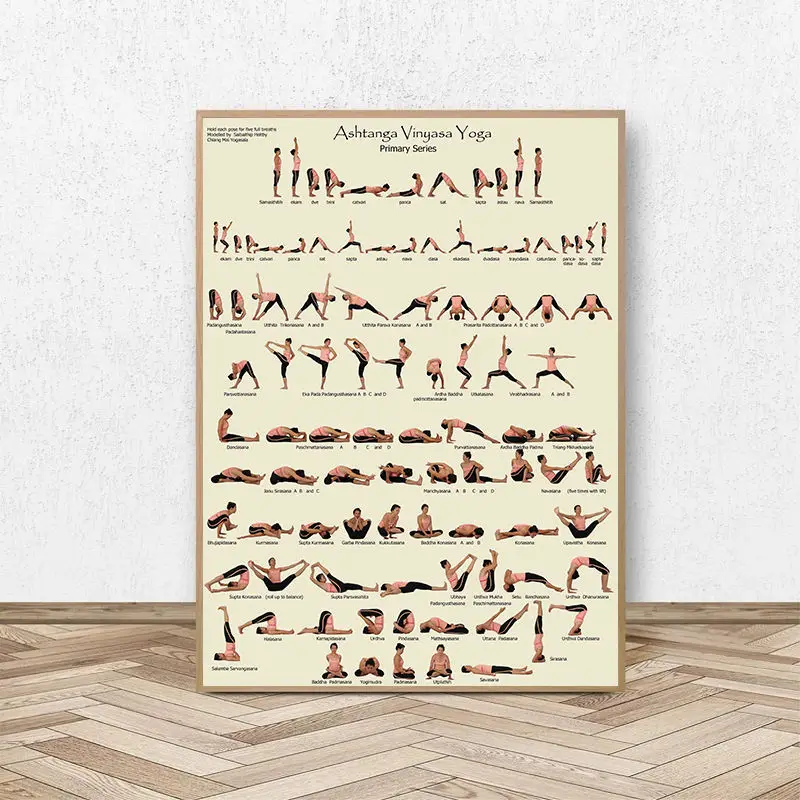 Hold each pose for five full breaths
Modelled by Saibaithip Heltby
Chiang Mai Yogasala
Ashtanga Vinyasa Yoga
Primary Series
Samasthitih ekam dve trini catvari panca sat sapta astau nava Samasthitih
ekam dve trini catvari panca sat sapta astau nava dasa ekadasa dvadasa trayodasa caturdasa panca-dasa so-dasa sapta-dasa
Padangusthasana Utthita Trikonasana A and B Utthita Parsva Konasana A and B Prasarita Padottanasana A B C and D
Padahastasana
Parsvottanasana Eka Pada Padangusthasana A B C and D Ardha Baddha padmottanasana Utkatasana Virabhadrasana A and B
Dandasana Paschimattanasana A B C and D Purvattanasana Ardha Baddha Padma Triang Mukhaikapada
Janu Sirsasana A B and C Marichyasana A B C and D Navasana (five times with lift)
Bhujapidasana Kurmasana Supta Kurmasana Garba Pindasana Kukkutasana Baddha Konasana A and B Konasana Upavistha Konasana
Supta Konasana (roll up to balance) Supta Parsvasahita Ubhaya Padangusthasana Urdhva Mukha Paschimattanasana Setu Bandhasana Urdhva Dhanurasana
Salamba Sarvangasana Halasana Karnapidasana Urdhva Pindasana Mathsayasana Uttana Padasana Sirsasana Urdhva Dandasana
Baddha Padmasana Yogimudra Padmasana Utplutihih Savasana